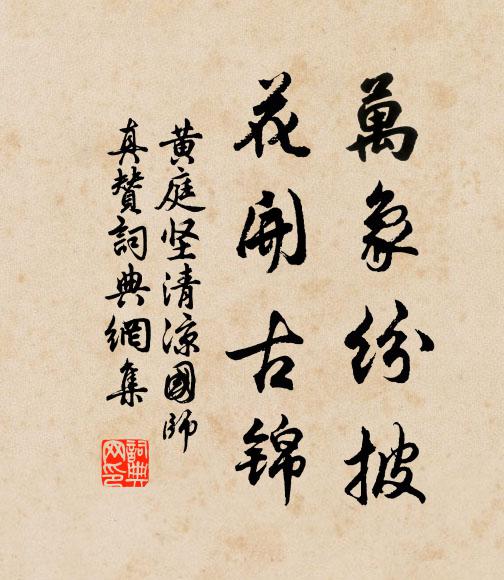 萬象紛披
花開古錦
黄庭坚清凉國師
真贊詞典網集
詞典网印